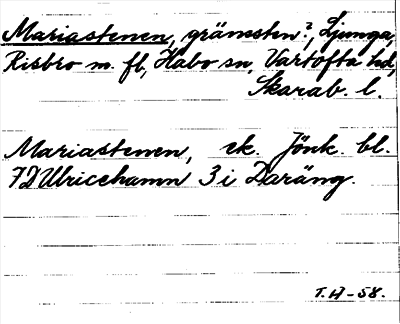 Mariastenen, gränssten?, Ljunga,
Risbro m. fl., Habo sn, Vartofta hd,
Skarab. l.
Mariastenen, ek. Jönk. bl.
7D Ulricehamn 3 i Daräng.
T.H-58.